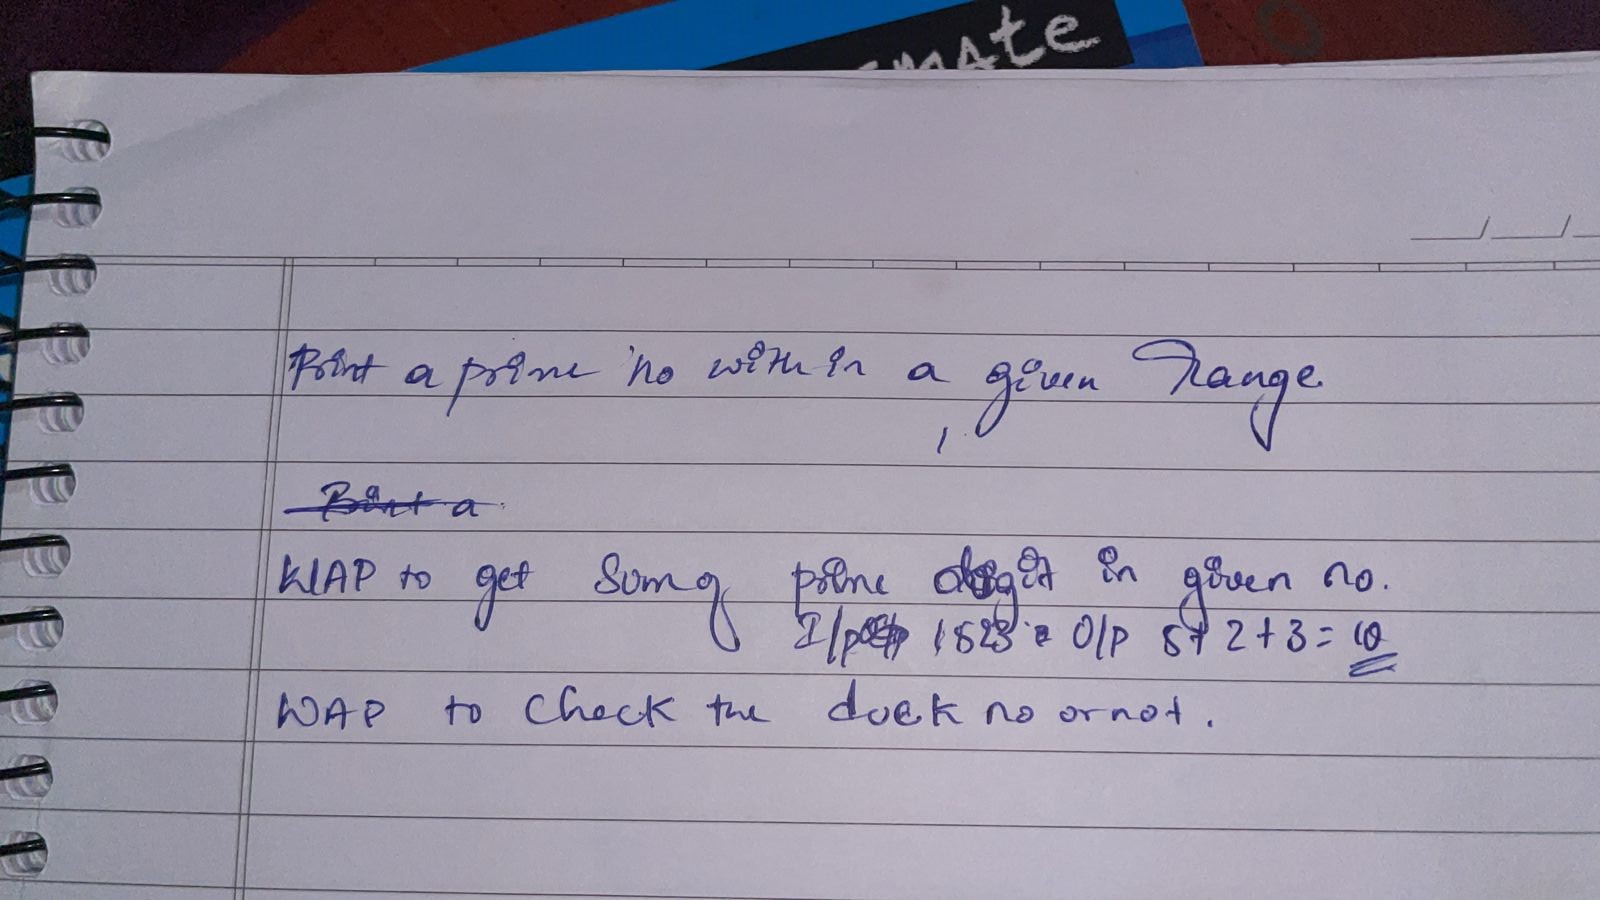 Print a prime no within a given Range
Print a
WAP to get Sum of prime digit in given no.
I/p 1523 = O/p 5+2+3=10
WAP to check the duck no or not.